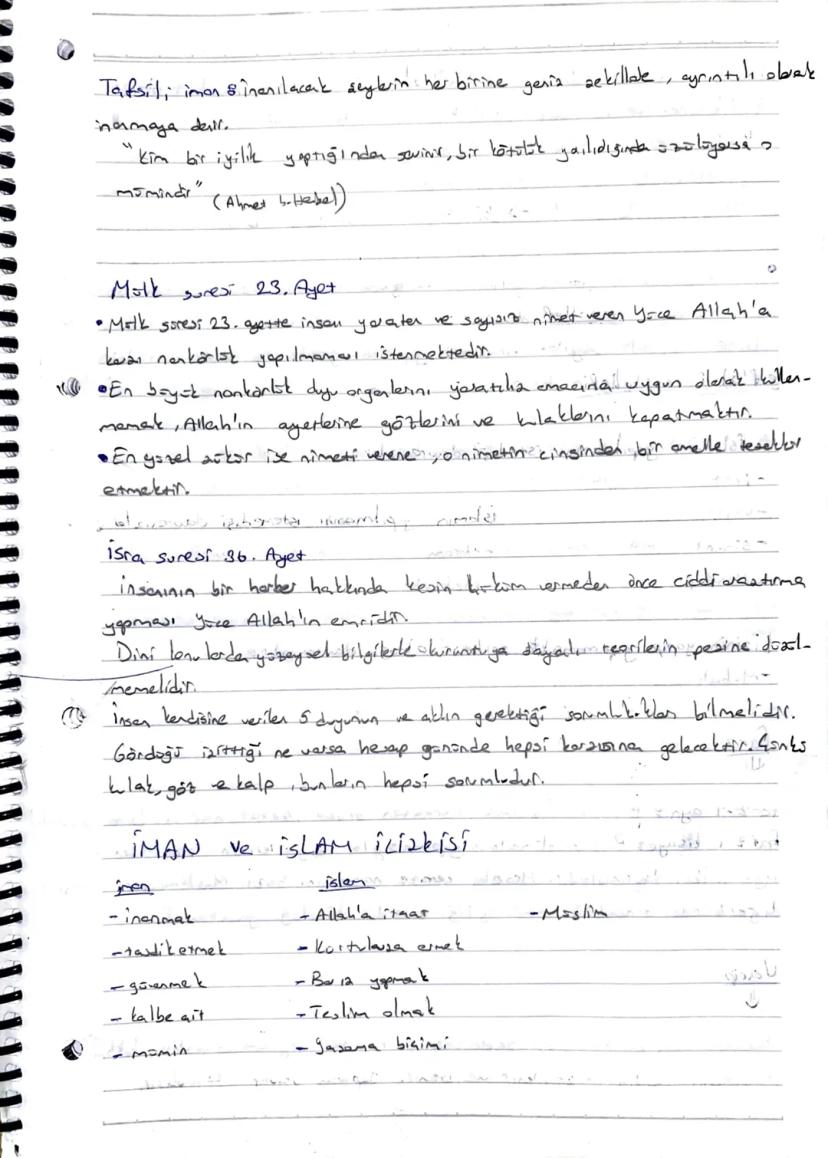 Tafsili iman: inanılacak şeylerin her birine geniş şekillde, ayrıntılı olarak
inanmaya denir.
"Kim bir iyilik yaptığından sevinir, bir kötülük yapıldığında üzülüyorsa o
mümindir" (Ahmet b. Hanbel)
Mülk suresi 23. Ayet
• Mülk suresi 23. ayette insanı yaratan ve sayısız nimet veren Yüce Allah'a
karşı nankörlük yapılmaması istenmektedir.
• En büyük nankörlük duyu organlarını yaratılış amacına uygun olarak kullan-
mamak, Allah'ın ayetlerine gözlerini ve kulaklarını kapatmaktır.
• En güzel şükür ise nimeti verene, o nimetin cinsinden bir amelle teşekkür
etmektir.
İsra suresi 36. Ayet
İnsanının bir haber hakkında kesin hüküm vermeden önce ciddi araştırma
yapması Yüce Allah'ın emridir.
Dini konularda yüzeysel bilgilerle kuruntuya dayalı teorilerin peşine düşül-
memelidir.
İnsan kendisine verilen 5 duyunun ve aklın gerektiği sorumlulukları bilmelidir.
Gördüğü işittiği ne varsa hesap gününde hepsi karşısına gelecektir. Çünkü
kulak, göz ve kalp, bunların hepsi sorumludur.
İMAN ve İSLAM İLİŞKİSİ
iman islam
- inanmak - Allah'a itaat - Müslim
- tasdik etmek - Kurtuluşa ermek
- güvenmek - Barış yapmak
- kalbe ait - Teslim olmak
- mümin - Yaşama biçimi